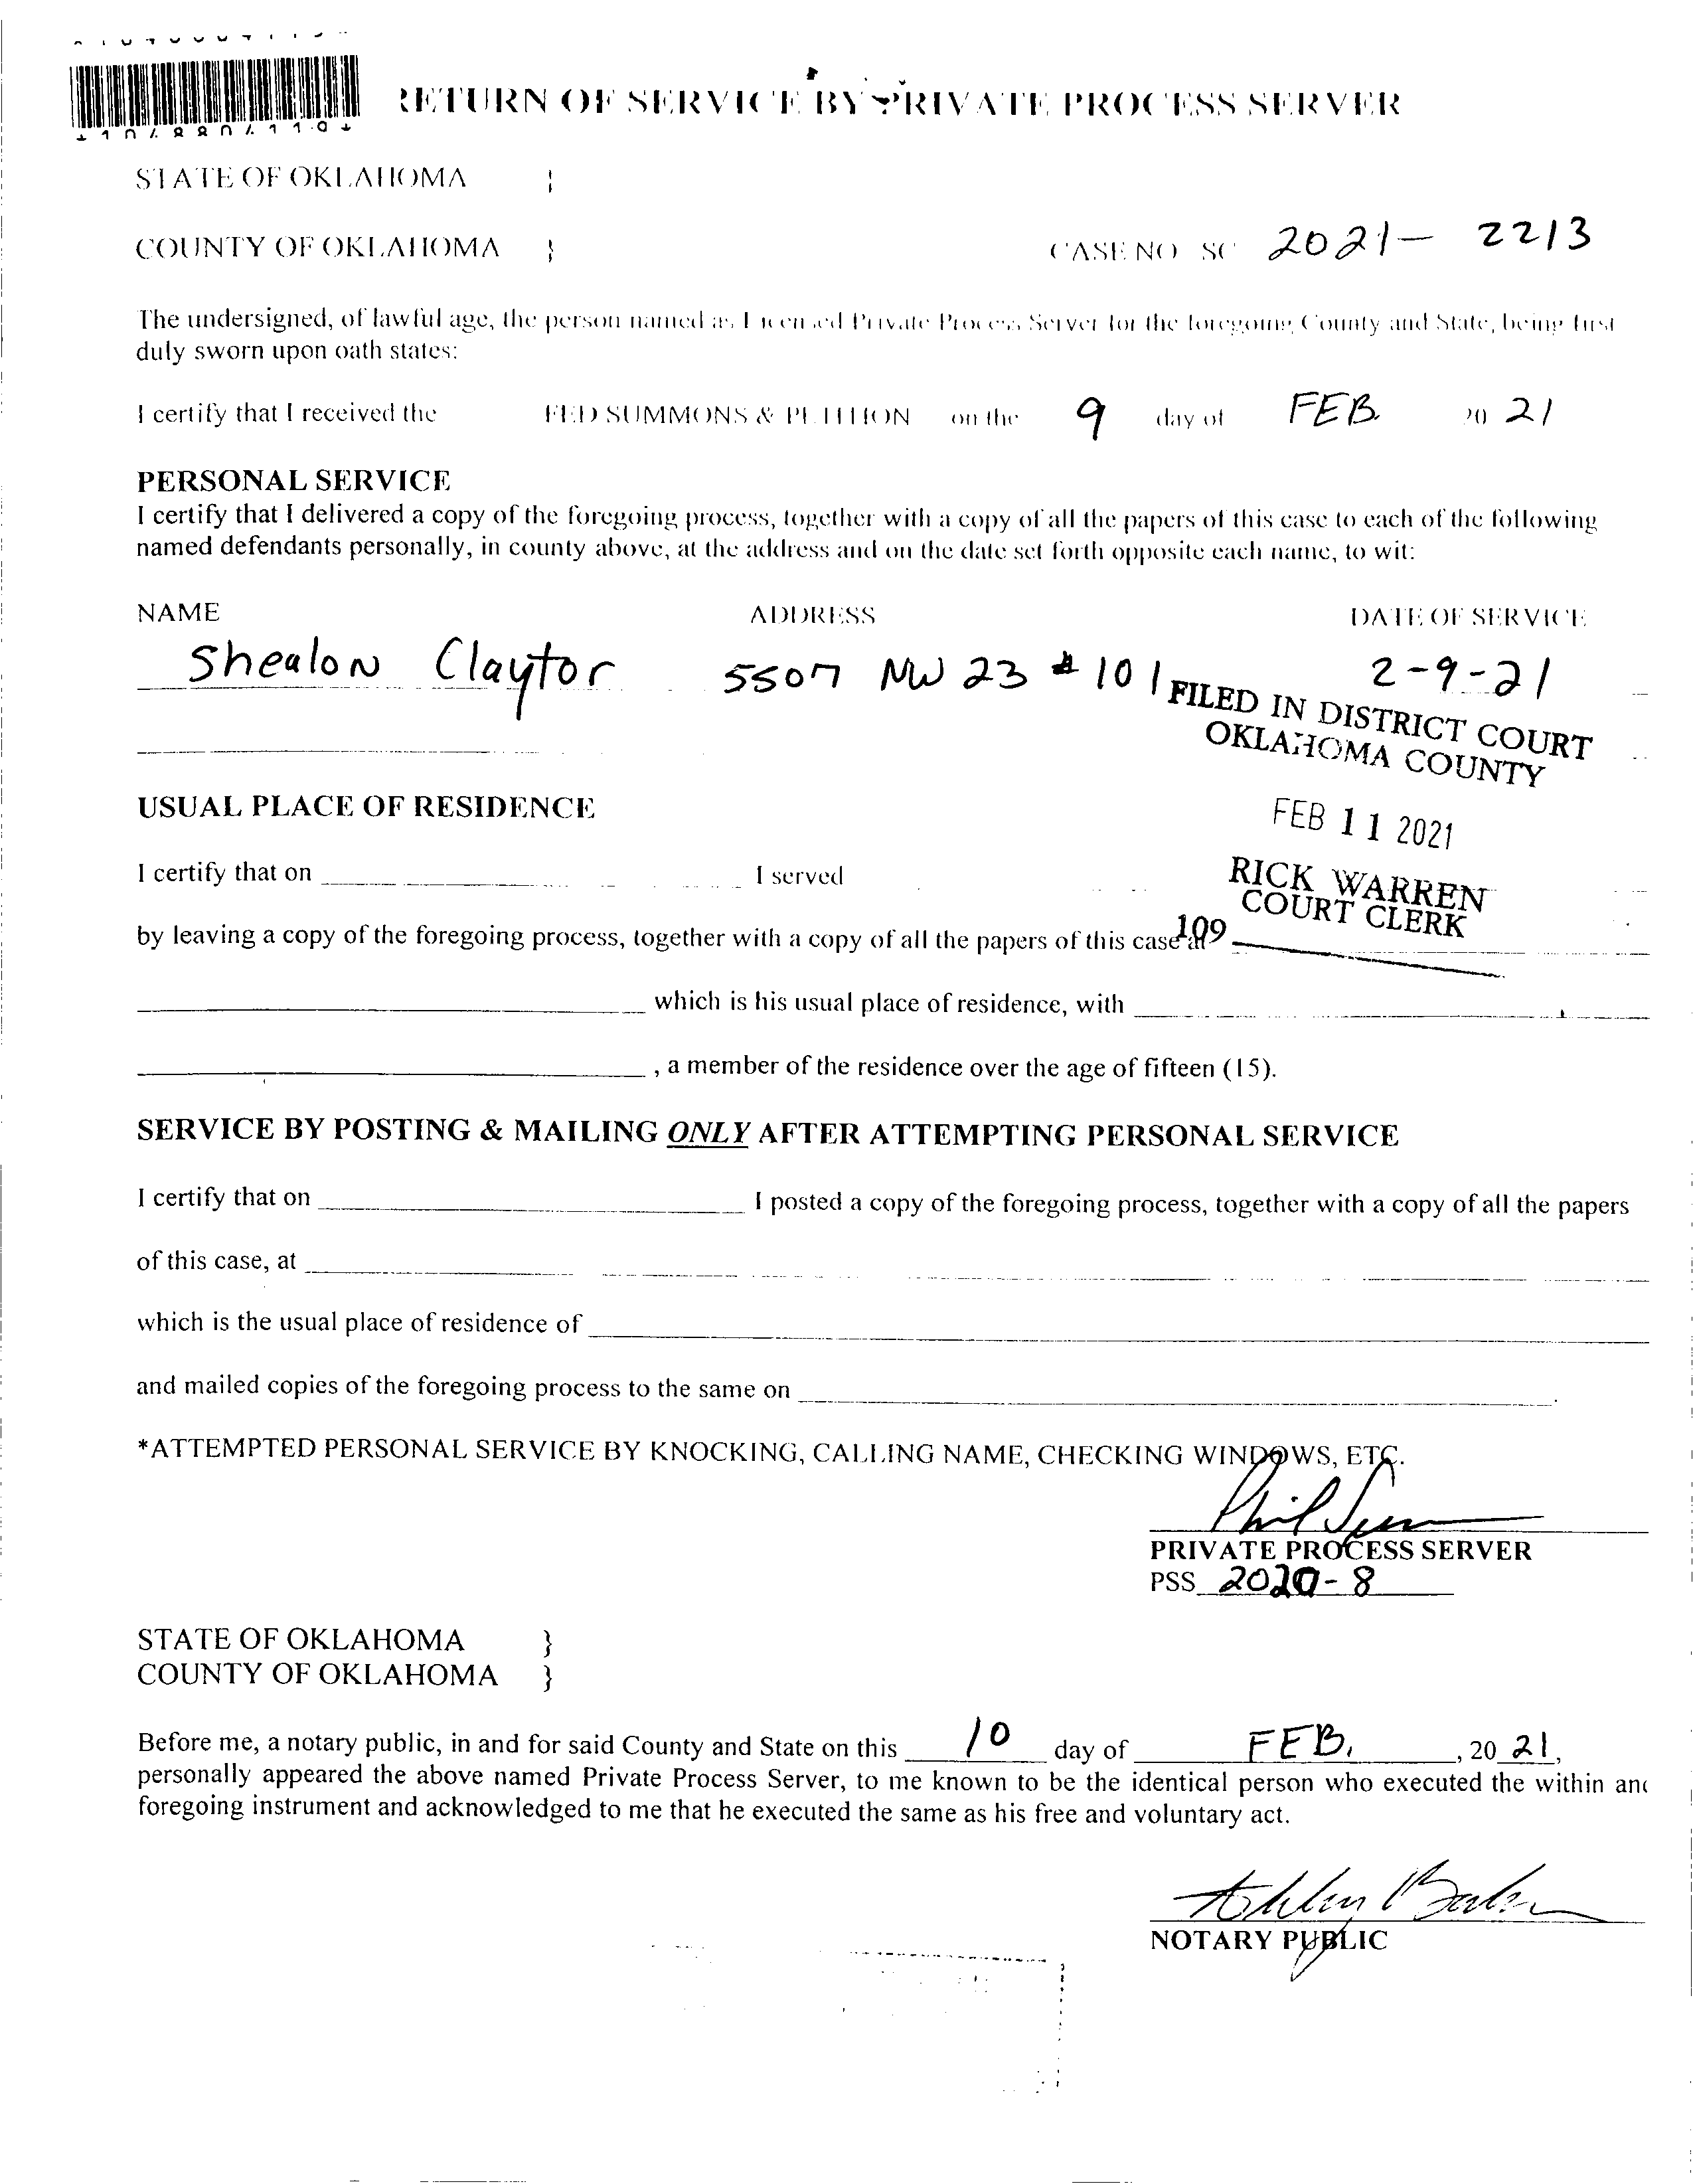 RETURN OF SERVICE BY PRIVATE PROCESS SERVER
STATE OF OKLAHOMA }
COUNTY OF OKLAHOMA } CASE NO SC 2021- 2213
The undersigned, of lawful age, the person named as Licensed Private Process Server for the foregoing County and State, being first
duly sworn upon oath states:
I certify that I received the FED SUMMONS & PETITION on the 9 day of FEB. 20 21
PERSONAL SERVICE
I certify that I delivered a copy of the foregoing process, together with a copy of all the papers of this case to each of the following
named defendants personally, in county above, at the address and on the date set forth opposite each name, to wit:
NAME ADDRESS DATE OF SERVICE
Shealon Claytor 5507 NW 23 # 101 2-9-21
FILED IN DISTRICT COURT
OKLAHOMA COUNTY
USUAL PLACE OF RESIDENCE
FEB 11 2021
I certify that on I served
RICK WARREN
COURT CLERK
by leaving a copy of the foregoing process, together with a copy of all the papers of this case at
109
which is his usual place of residence, with
, a member of the residence over the age of fifteen (15).
SERVICE BY POSTING & MAILING ONLY AFTER ATTEMPTING PERSONAL SERVICE
I certify that on I posted a copy of the foregoing process, together with a copy of all the papers
of this case, at
which is the usual place of residence of
and mailed copies of the foregoing process to the same on .
*ATTEMPTED PERSONAL SERVICE BY KNOCKING, CALLING NAME, CHECKING WINDOWS, ETC.
Phil
PRIVATE PROCESS SERVER
PSS 2020-8
STATE OF OKLAHOMA }
COUNTY OF OKLAHOMA }
Before me, a notary public, in and for said County and State on this 10 day of FEB. , 20 21,
personally appeared the above named Private Process Server, to me known to be the identical person who executed the within an
foregoing instrument and acknowledged to me that he executed the same as his free and voluntary act.
NOTARY PUBLIC